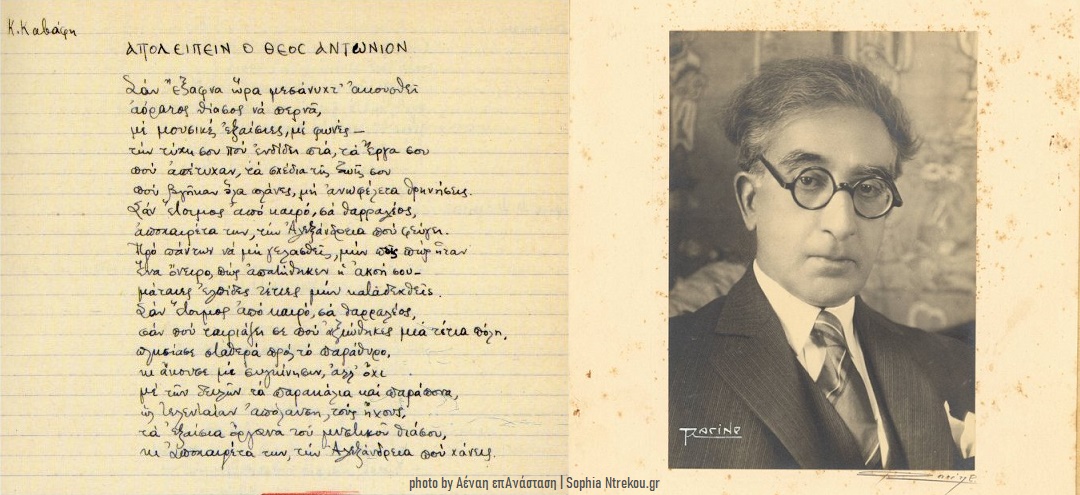 Κ. Καβάφη
ΑΠΟΛΕΙΠΕΙΝ Ο ΘΕΟΣ ΑΝΤΩΝΙΟΝ
Σάν ἔξαφνα ὥρα μεσάνυχτ' ἀκουσθεῖ
ἀόρατος θίασος νά περνᾶ,
μέ μουσικές ἐξαίσιες, μέ φωνές —
τήν τύχη σου πού ἐνδίδει πιά, τά ἔργα σου
πού ἀπέτυχαν, τά σχέδια τῆς ζωῆς σου
πού βγῆκαν ὅλα πλάνες, μή ἀνωφέλετα θρηνήσεις.
Σάν ἕτοιμος ἀπό καιρό, σά θαρραλέος,
ἀποχαιρέτα την, τήν Ἀλεξάνδρεια πού φεύγει.
Πρό πάντων νά μή γελασθεῖς, μήν πεῖς πώς ἦταν
ἕνα ὄνειρο, πώς ἀπατήθηκεν ἡ ἀκοή σου —
μάταιες ἐλπίδες τέτοιες μήν καταδεχθεῖς.
Σάν ἕτοιμος ἀπό καιρό, σά θαρραλέος,
σάν πού ταιριάζει σε πού ἀξιώθηκες μιά τέτοια πόλη,
πλησίασε σταθερά πρός τό παράθυρο,
κι ἄκουσε μέ συγκίνησιν, ἀλλ' ὄχι
μέ τῶν δειλῶν τά παρακάλια καί παράπονα,
ὡς τελευταία ἀπόλαυση τούς ἤχους,
τά ἐξαίσια ὄργανα τοῦ μυστικοῦ θιάσου,
κι ἀποχαιρέτα την, τήν Ἀλεξάνδρεια πού χάνεις.
RACINE
photo by Αέναη επΑνάσταση | Sophia Ntrekou.gr